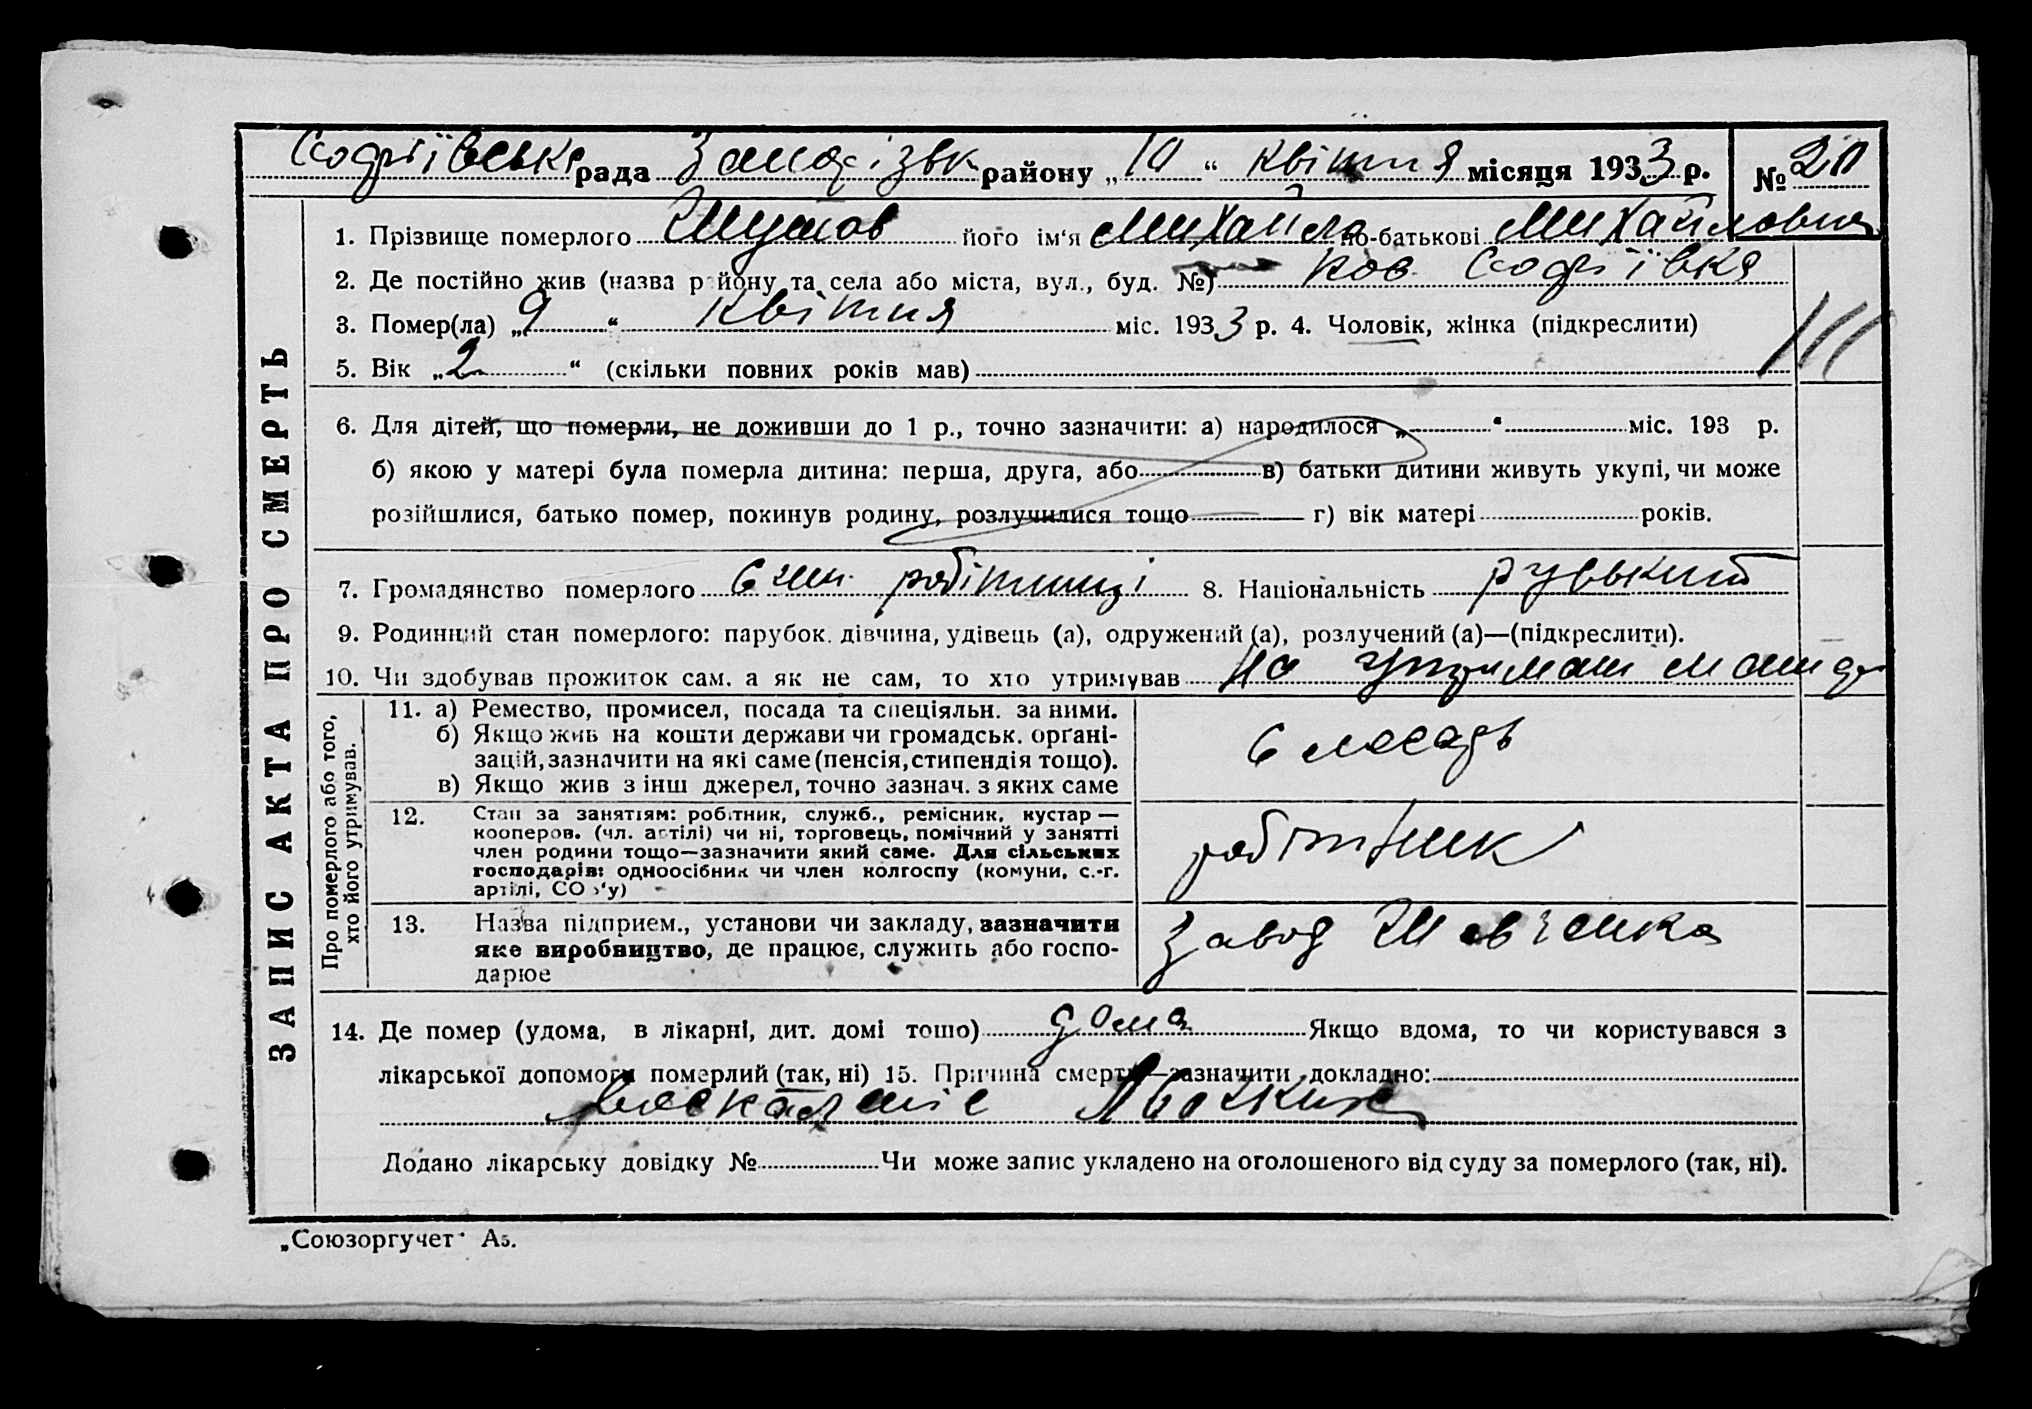 Софіївська рада Запорізьк району „10“ квітня місяця 1933 р. № 20
1. Прізвище померлого Шумов його ім'я Михайло по-батькові Михайлович
2. Де постійно жив (назва району та села або міста, вул., буд. №) Софіївка
3. Помер(ла) „9“ квітня міс. 1933 р. 4. Чоловік, жінка (підкреслити)
5. Вік „2“ (скільки повних років мав)
6. Для дітей, що померли, не доживши до 1 р., точно зазначити: а) народилося „ “ міс. 193 р.
б) якою у матері була померла дитина: перша, друга, або в) батьки дитини живуть укупі, чи може
розійшлися, батько помер, покинув родину, розлучилися тощо г) вік матері років.
7. Громадянство померлого син робітниці 8. Національність руський
9. Родинний стан померлого: парубок, дівчина, удівець (а), одружений (а), розлучений (а)—(підкреслити).
10. Чи здобував прожиток сам, а як не сам, то хто утримував на утриман матери
ЗАПИС АКТА ПРО СМЕРТЬ
Про померлого або того, хто його утримував.
11. а) Ремество, промисел, посада та спеціяльн. за ними.
б) Якщо жив на кошти держави чи громадськ. органі-
зацій, зазначити на які саме (пенсія, стипендія тощо).
в) Якщо жив з інш джерел, точно зазнач. з яких саме
слесарь
12. Стан за заняттям: робітник, служб., ремісник, кустар —
кооперов. (чл. артілі) чи ні, торговець, помічний у занятті
член родини тощо—зазначити який саме. Для сільських
господарів: одноосібник чи член колгоспу (комуни, с.-г.
артілі, СОЗ'у)
робітник
13. Назва підприєм., установи чи закладу, зазначити
яке виробництво, де працює, служить або госпо-
дарює
завод Шевченка
14. Де помер (удома, в лікарні, дит. домі тощо) дома Якщо вдома, то чи користувався з
лікарської допомоги померлий (так, ні) 15. Причина смерти—зазначити докладно:
Додано лікарську довідку № Чи може запис укладено на оголошеного від суду за померлого (так, ні).
„Союзоргучет“ А5.